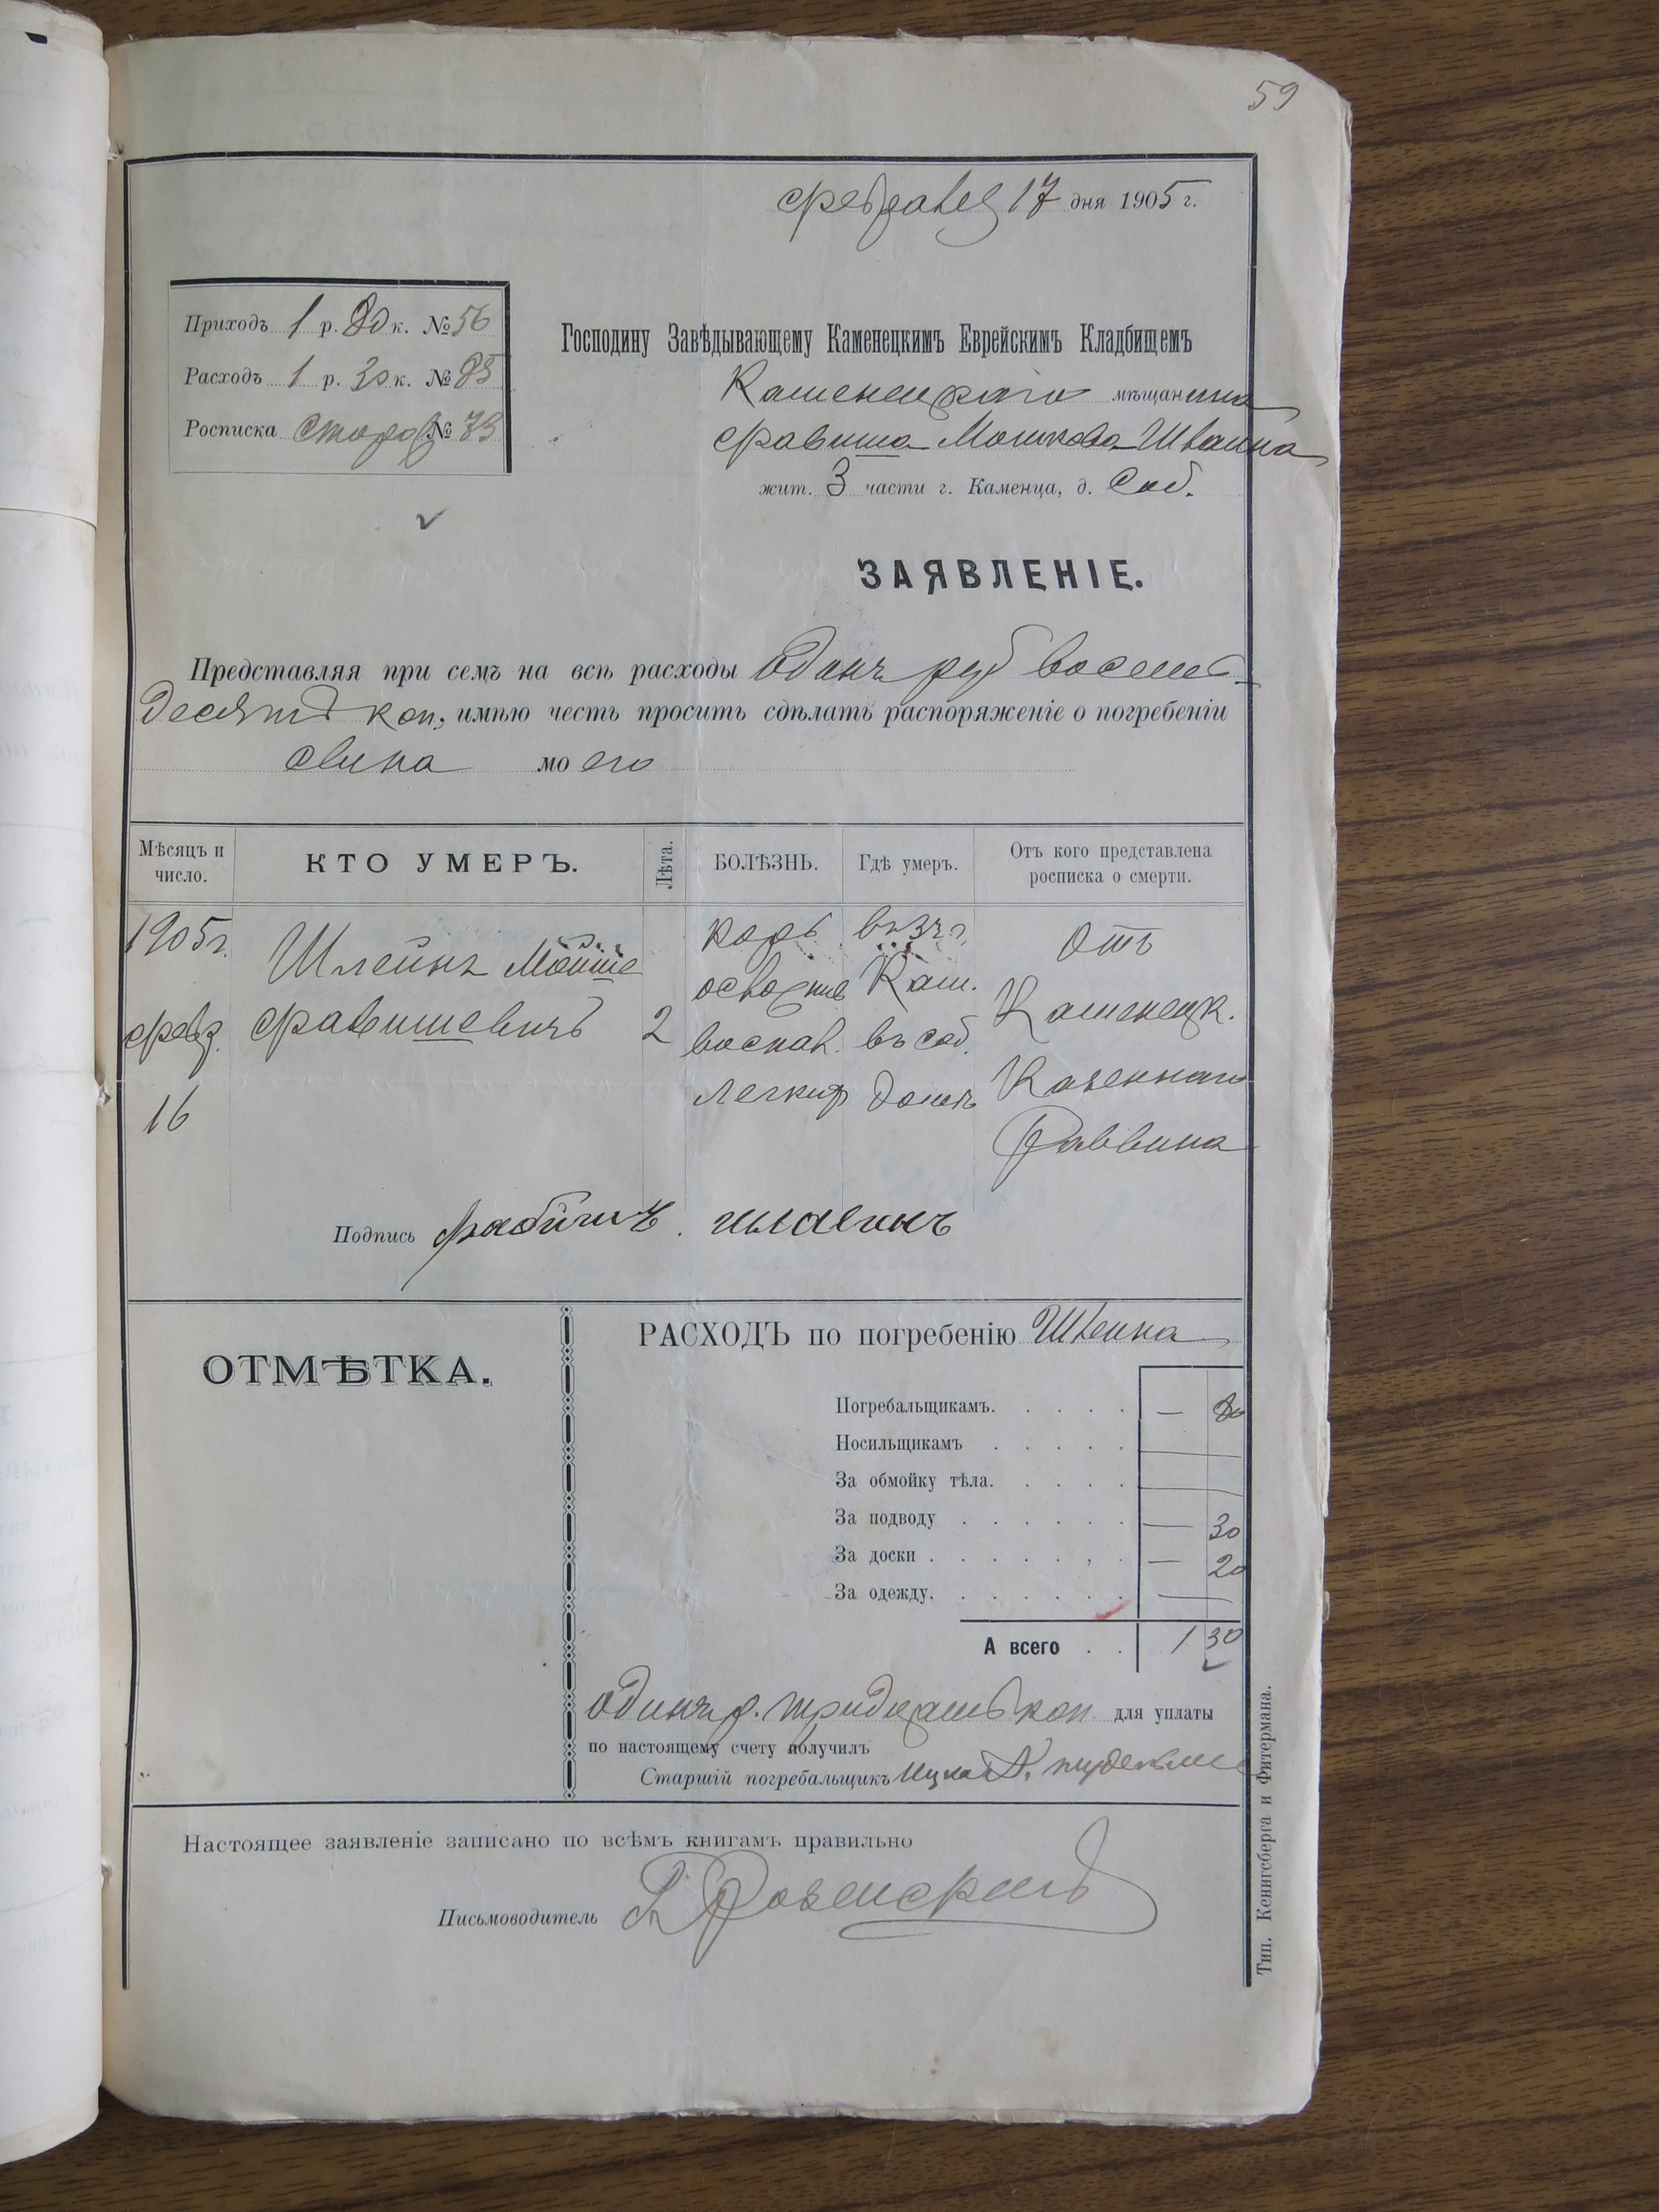 59
февраля 17 дня 1905 г.
Приходъ 1 р. 80 к. № 56
Расходъ 1 р. 30 к. № 85
Росписка № 79
Господину Завѣдывающему Каменецкимъ Еврейскимъ Кладбищемъ
Каменецкаго мѣщанина
Фавиша Мошкова
жит. 3 части г. Каменца, д. Соб.
ЗАЯВЛЕНІЕ.
Представляя при семъ на всѣ расходы одинъ руб восемь-
десятъ коп, имѣю честь просить сдѣлать распоряженіе о погребеніи
сына моего
Мѣсяцъ и число.
КТО УМЕРЪ.
Лѣта.
БОЛѢЗНЬ.
Гдѣ умеръ.
Отъ кого представлена росписка о смерти.
1905 г. февр. 16
Мойше Фавишевичъ
2
корь воспал. легкихъ
въ 3 ч. Кам. въ соб. домѣ
Отъ Каменецк. Казеннаго Раввина
Подпись
ОТМѢТКА.
РАСХОДЪ по погребенію
Погребальщикамъ. — 80
Носильщикамъ
За обмойку тѣла.
За подводу — 30
За доски — 20
За одежду. —
А всего 1 30
одинъ р. тридцать коп. для уплаты
по настоящему счету получилъ
Старшій погребальщикъ
Настоящее заявленіе записано по всѣмъ книгамъ правильно
Письмоводитель
Тип. Кенигсберга и Фитермана.